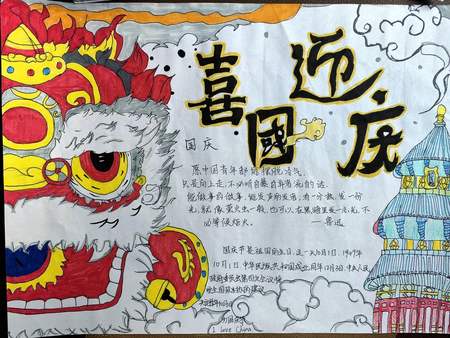 喜迎國庆
国庆
愿中国青年都能摆脱冷气,
只是向上走,不必听自暴自弃者流的话.
能做事的做事,能发声的发声,有一分热,发一份
光,就像萤火虫一般,也可以在黑暗里发一点光,不
必等候炬火.
——鲁迅
国庆节是祖国的生日,这一天10月1日,1949年
10月1日,中华民族共和国成立,同年12月3日,中央人民
I Love China